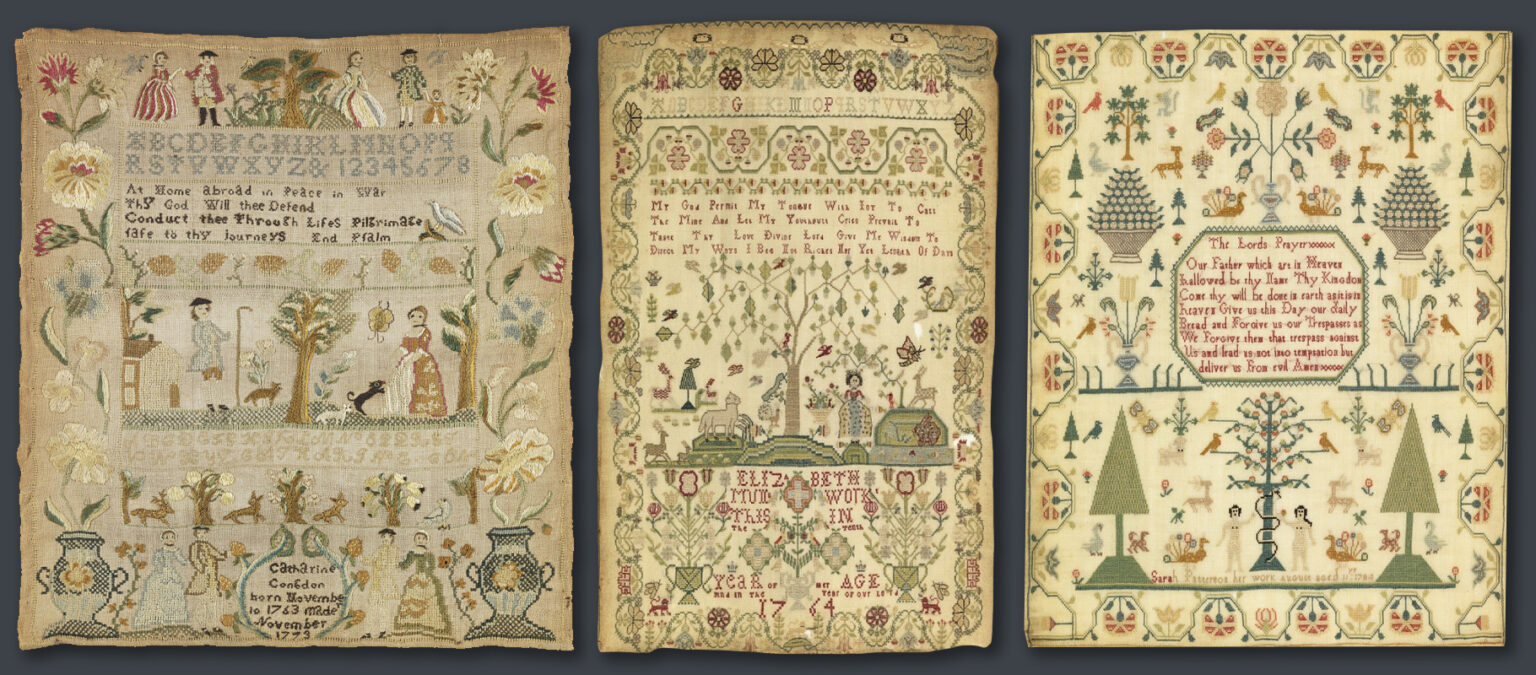 ABCDEFGHIKLMNOPQ
RSTVWXYZ& 12345678
At Home abroad in Peace in War
Thy God Will thee Defend
Conduct thee Through Lifes Pilgrimage
safe to thy journeys End Psalm
Catharine
Congdon
born November
10 1763 made
November
1773
ABCDEFGHIKLMNOPQRSTVWX
My God Permit My Tongue With Ioy To Call
The Mine And Let My
Cries Prevail To
Taste Thy Love Divine Lord Give Me Wisdom To
Direct My Ways I Beg Nor Riches Nor Yet Length Of Days
ELIZ BETH
WORK
THIS IN
THE
YEAR OF HER AGE
AND IN THE YEAR OF OUR LORD
1764
The Lords Prayer xxxxxx
Our Father which are in Heaven
hallowed be thy Name Thy Kingdon
Come thy will be done in earth as it is in
Heaven Give us this Day our daily
Bread and Forgive us our Trespasses as
We Forgive them that trespass against
Us and lead us not into temptation but
deliver us From evil Amen xxxxxx
Sarah Patterson her work August aged 11